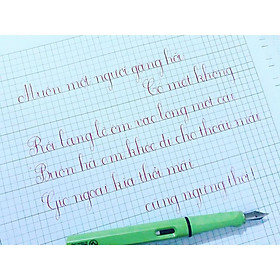 Muốn một người gàng hỏi
Có mệt không
Rồi lặng lẽ ôm vào lòng một cái
Buồn hả em khóc đi cho thoải mái
Gió ngoài kia thổi mãi
cũng ngừng thôi!